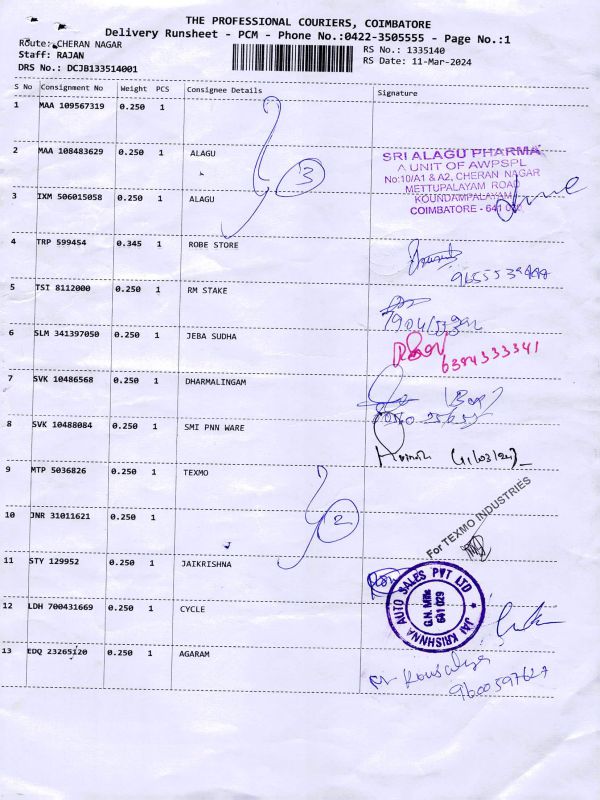 THE PROFESSIONAL COURIERS, COIMBATORE
Delivery Runsheet - PCM - Phone No.:0422-3505555 - Page No.:1
Route: CHERAN NAGAR
RS No.: 1335140
Staff: RAJAN
RS Date: 11-Mar-2024
DRS No.: DCJB133514001
S No Consignment No Weight PCS Consignee Details Signature
1 MAA 109567319 0.250 1
2 MAA 108483629 0.250 1 ALAGU
SRI ALAGU PHARMA
A UNIT OF AWPSPL
No:10/A1 & A2, CHERAN NAGAR
METTUPALAYAM ROAD
KOUNDAMPALAYAM
COIMBATORE - 641
3
3 IXM 506015058 0.250 1 ALAGU
4 TRP 599454 0.345 1 ROBE STORE
5 TSI 8112000 0.250 1 RM STAKE
6 SLM 341397050 0.250 1 JEBA SUDHA
6384333341
7 SVK 10486568 0.250 1 DHARMALINGAM
8 SVK 10488084 0.250 1 SMI PNN WARE
(11/03/24)
9 MTP 5036826 0.250 1 TEXMO
For TEXMO INDUSTRIES
10 JNR 31011621 0.250 1
2
11 STY 129952 0.250 1 JAIKRISHNA
JAI KRISHNNA AUTO SALES PVT LTD
G.N. Mills
641 029
12 LDH 700431669 0.250 1 CYCLE
13 EDQ 23265120 0.250 1 AGARAM
Kousalya
9600597627